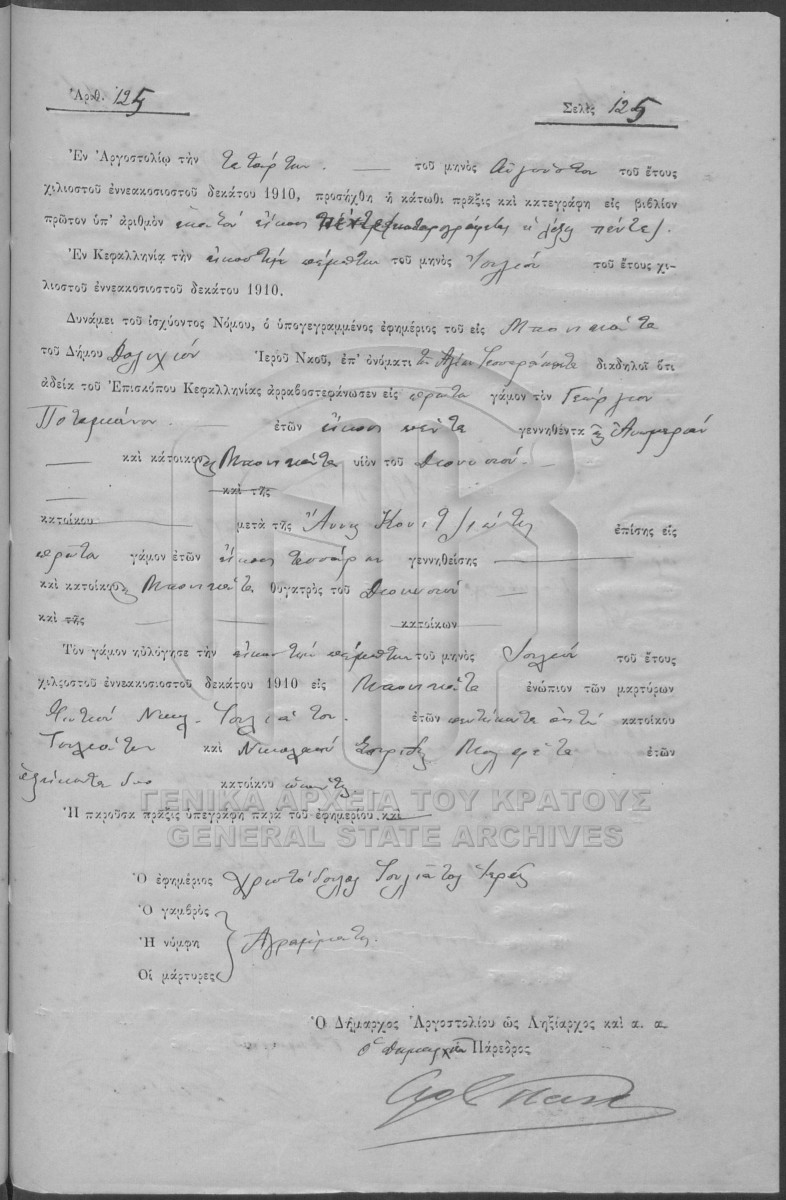 Ἀριθ. 125
Σελὶς 125
Ἐν Ἀργοστολίῳ τὴν τετάρτην τοῦ μηνὸς Αὐγούστου τοῦ ἔτους
χιλιοστοῦ ἐννεακοσιοστοῦ δεκάτου 1910, προσήχθη ἡ κάτωθι πρᾶξις καὶ κατεγράφη εἰς βιβλίον
πρῶτον ὑπ' ἀριθμὸν ἑκατὸν εἴκοσι πέντε ἡ λέξις πέντε).
Ἐν Κεφαλληνίᾳ τὴν εἰκοστὴν πέμπτην τοῦ μηνὸς Ἰουλίου τοῦ ἔτους χι-
λιοστοῦ ἐννεακοσιοστοῦ δεκάτου 1910.
Δυνάμει τοῦ ἰσχύοντος Νόμου, ὁ ὑπογεγραμμένος ἐφημέριος τοῦ εἰς
τοῦ Δήμου Δολιχίου Ἱεροῦ Ναοῦ, ἐπ' ὀνόματι διαδηλοῖ ὅτι
ἀδείᾳ τοῦ Ἐπισκόπου Κεφαλληνίας ἀρραβοστεφάνωσεν εἰς πρῶτον γάμον τὸν Γεώργιον
Ποταμιάνον ἐτῶν εἴκοσι πέντε γεννηθέντα
καὶ κάτοικον υἱὸν τοῦ Διονυσίου
καὶ τῆς
κατοίκου μετὰ τῆς Ἄννης ἐπίσης εἰς
πρῶτον γάμον ἐτῶν εἴκοσι τεσσάρων γεννηθείσης
καὶ κατοίκου θυγατρὸς τοῦ Διονυσίου
καὶ τῆς κατοίκων
Τὸν γάμον ηὐλόγησε τὴν εἰκοστὴν πέμπτην τοῦ μηνὸς Ἰουλίου τοῦ ἔτους
χιλιοστοῦ ἐννεακοσιοστοῦ δεκάτου 1910 εἰς ἐνώπιον τῶν μαρτύρων
Φωτίου Νικ. Τουλιάτου ἐτῶν πεντήκοντα κατοίκου
Τουλιάτων καὶ Νικολάου ἐτῶν
ἑξήκοντα δύο κατοίκου
Ἡ παροῦσα πρᾶξις ὑπεγράφη παρὰ τοῦ ἐφημερίου καὶ
ΓΕΝΙΚΑ ΑΡΧΕΙΑ ΤΟΥ ΚΡΑΤΟΥΣ
GENERAL STATE ARCHIVES
Ὁ ἐφημέριος Χριστόδουλος Τουλιάτος Ἱερεὺς
Ὁ γαμβρὸς
Ἡ νύμφη Ἀγράμματοι.
Οἱ μάρτυρες
Ὁ Δήμαρχος Ἀργοστολίου ὡς Ληξίαρχος καὶ α. α.
ὁ Πάρεδρος